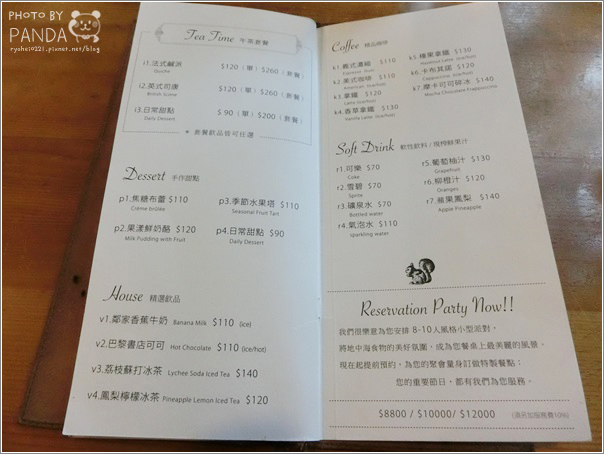 PHOTO BY
PANDA
ryohei0221.pixnet.net/blog
Tea Time 午茶套餐
i1.法式鹹派 $120 (單) $260 (套餐)
Quiche
i2.英式司康 $120 (單) $260 (套餐)
British Scone
i3.日常甜點 $ 90 (單) $200 (套餐)
Daily Dessert
* 套餐飲品皆可任選
Dessert 手作甜點
p1.焦糖布蕾 $110 p3.季節水果塔 $110
Crème brûlée Seasonal Fruit Tart
p2.果漾鮮奶酪 $120 p4.日常甜點 $90
Milk Pudding with Fruit Daily Dessert
House 精選飲品
v1.鄭家香蕉牛奶 Banana Milk $110 (ice)
v2.巴黎書店可可 Hot Chocolate $110 (ice/hot)
v3.荔枝蘇打冰茶 Lychee Soda Iced Tea $140
v4.鳳梨檸檬冰茶 Pineapple Lemon Iced Tea $120
Coffee 精品咖啡
k1.義式濃縮 $110 k5.榛果拿鐵 $130
Espresso (hot) Hazelnut Latte (ice/hot)
k2.美式咖啡 $110 k6.卡布其諾 $120
Americano (ice/hot) Cappuccino (ice/hot)
k3.拿鐵 $120 k7.摩卡可可碎冰 $140
Latte (ice/hot) Mocha Chocolate Frappuccino
k4.香草拿鐵 $130
Vanilla Latte (ice/hot)
Soft Drink 軟性飲料 / 現榨鮮果汁
r1.可樂 $70 r5.葡萄柚汁 $130
Coke Grapefruit
r2.雪碧 $70 r6.柳橙汁 $120
Sprite Oranges
r3.礦泉水 $70 r7.蘋果鳳梨 $140
Bottled water Apple Pineapple
r4.氣泡水 $110
sparkling water
Reservation Party Now!!
我們很樂意為您安排 8-10人風格小型派對，
將地中海食物的美好氛圍，成為您餐桌上最美麗的風景。
現在起提前預約，為您的聚會量身訂做特製餐點；
您的重要節日，都有我們為您服務。
$8800 / $10000/ $12000 (須另加服務費10%)